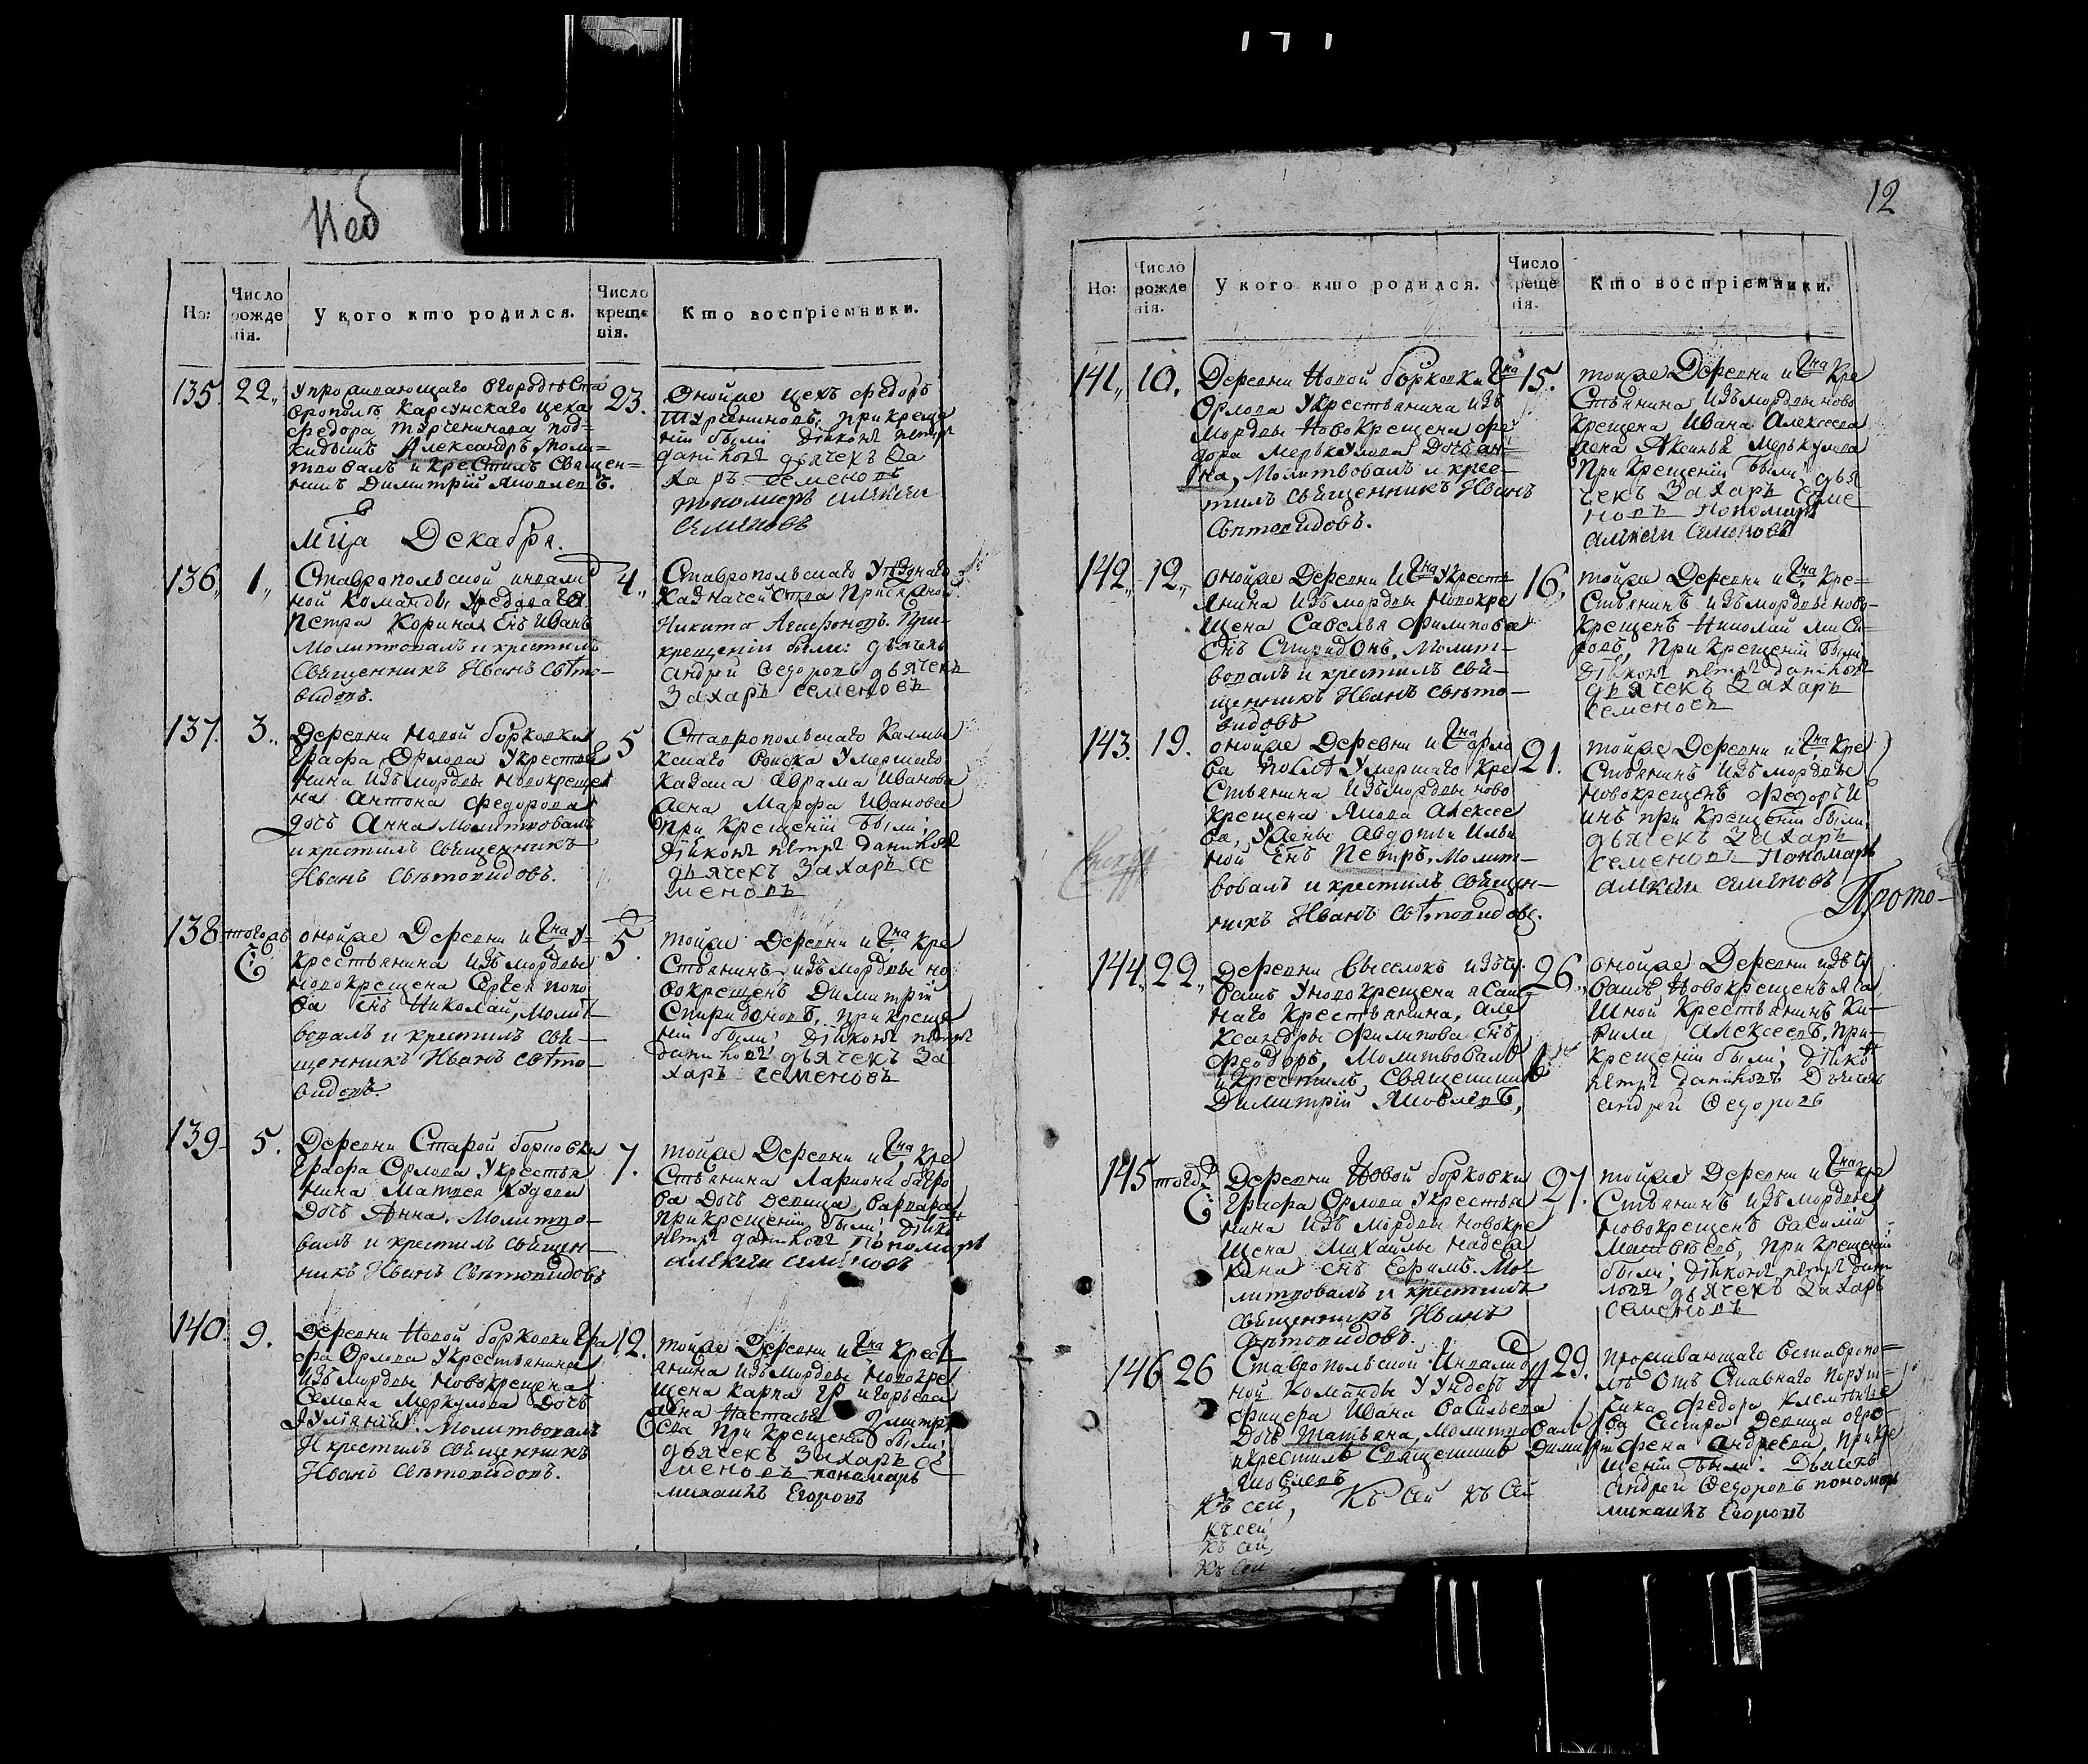 12
Но:
Число рожденія.
У кого кто родился.
Число крещенія.
Кто воспріемники.
135.
22„
У проживающаго в городѣ Ста
врополѣ Карсунскаго цеха
Федора
кидышъ Александръ моли=
твовалъ и крестилъ Священ=
никъ Димитрій Яковлевъ.
23.
Оной же цехъ Федоръ
при креще
ніи были діаконъ петръ
даниловъ дьячекъ За
харъ семеновъ
пономарь алексѣй
семеновъ
Мца Декабря.
136„
1„
Ставропольской инвалид
ной команды
Петра Корина Снъ Иванъ
Молитвовалъ и крестилъ
Священникъ Иванъ Свѣто-
видовъ.
4„
Ставропольскаго Уѣзднаго
Казначейства Присяжной
Никита Агафоновъ. При-
крещеніи были: дьячекъ
андрей Федоровъ дьячекъ
Захаръ семеновъ
137.
3„
Деревни Новой борковки
Графа Орлова У крестья
нина изъ мордвы новокреще
на Антона Федорова
дочь Анна Молитвовалъ
и крестилъ Священникъ
Иванъ Свѣтовидовъ.
5
Ставропольскаго Калмы
кскаго Войска Умершаго
казака Аврама Иванова
жена Марфа Иванова
При Крещеніи были;
Діаконъ петръ даниловъ
дьячекъ Захаръ се
меновъ
138
тогожъ
оной же Деревни и Гна У-
крестьянина изъ мордвы
новокрещена Сергея попо
ва снъ Николай, Молит-
вовалъ и крестилъ Свя-
щенникъ Иванъ Свѣто-
видовъ.
5.
той же Деревни и Гна Кре
стьянинъ изъ мордвы но
вокрещенъ Димитрій
Спиридоновъ, При креще
ніи были; Діаконъ петръ
даниловъ дьячекъ За
харъ семеновъ
139
5.
Деревни Старой борковки
Графа Орлова У крестья
нина Матвея
дочь Анна. Молитво-
валъ и крестилъ Священ-
никъ Иванъ Свѣтовидовъ
7.
той же Деревни и Гна Кре
стьянина Лариона
ва дочь девица варвара
При Крещеніи были; Діако
петръ даниловъ Пономарь
алексѣй семеновъ
140.
9.
Деревни Новой борковки Гра
фа Орлова У крестьянина
изъ мордвы Новокрещена
Семена Меркулова дочь
Іуліаній. Молитвовалъ
и крестилъ Священникъ
Иванъ Свѣтовидовъ.
12.
той же Деревни и Гна Крест
янина изъ мордвы новокре
щена Карпа Григорьева
жена Настасья Дмитрі
ева При Крещеніи были;
дьячекъ Захаръ се
меновъ пономарь
михаилъ Егоровъ
Но:
Число рожденія.
У кого кто родился.
Число крещенія.
Кто воспріемники.
141„
10.
Деревни Новой борковки Гна
Орлова У крестьянина изъ
Мордвы Новокрещена фе
дора Меркулова Дочь ан-
на, Молитвовалъ и крес-
тилъ Священникъ Иванъ
Свѣтовидовъ.
15.
той же Деревни и Гна Кре
стьянина изъ мордвы ново
крещена Ивана Алексеева
жена Аксинья Меркулова
При Крещеніи были; дья
чекъ Захаръ Семе
новъ Пономарь
алексѣй семеновъ
142„
12„
оной же Деревни и Гна У крест
янина изъ мордвы новокре
щена Савелья Филипова
Снъ Спиридонъ, Молит-
вовалъ и крестилъ свя-
щенникъ Иванъ Свѣто-
видовъ
16.
той же Деревни и Гна, Кре=
стьянинъ изъ мордвы ново-
крещенъ Николай
При Крещеніи были
Діаконъ петръ даниловъ
дьячекъ Захаръ
семеновъ
143.
19.
оной же Деревни и Гна орло
ва послѣ Умершаго Кре
стьянина изъ мордвы ново
крещена Якова Алексее
ва, У жены Авдотьи Ильи
ной Снъ Петръ. Молит-
вовалъ и крестилъ Священ-
никъ Иванъ Свѣтовидовъ.
21.
той же Деревни и Гна, Кре
стьянинъ изъ мордвы
новокрещенъ Федоръ И
инъ при Крещеніи были,
дьячекъ Захаръ
семеновъ Пономарь
алексѣй семеновъ
Прото-
144„
22„
Деревни Выселокъ изъ чу
вашъ У новокрещена ясаш-
наго крестьянина, Але
ксандры Филипова снъ
Феодоръ, Молитвовалъ
и крестилъ, Священникъ
Димитрій Яковлевъ,
26.
оной же Деревни изъ чу
вашъ Новокрещенъ Яса
шной Крестьянинъ Ки-
рила Алексеевъ, При-
крещеніи были; Діако
петръ даниловъ Дьячекъ
андрей Федоровъ
145
Деревни Новой борковки
Графа Орлова У крестья
нина изъ мордвы новокре
щена Михайлы
снъ Ефимъ. Мо-
литвовалъ и крестилъ
Священникъ Иванъ
Свѣтовидовъ.
27.
той же Деревни и Гна кре
стьянинъ изъ мордвы
новокрещенъ Василій
Матвѣевъ, При Крещеніи
были; Діаконъ петръ дани
ловъ дьячекъ Захаръ
семеновъ
146
26
Ставропольской Инвалид
ной Команды У Ундеръ
офицера Ивана Васильева
дочь Татьяна, Молитвовалъ
и крестилъ Священникъ Димитрій
Яковлевъ
29.
проживающаго Вставропо=
лѣ Отъ Ставнаго Пору
чика Федора Клементье
ва Сестра Девица
фена Андреева, При кре
щеніи были: Дьячекъ
андрей Федоровъ пономарь
михаилъ Егоровъ
Къ сей, Къ сей къ сей
къ сей
къ сей,
къ сей